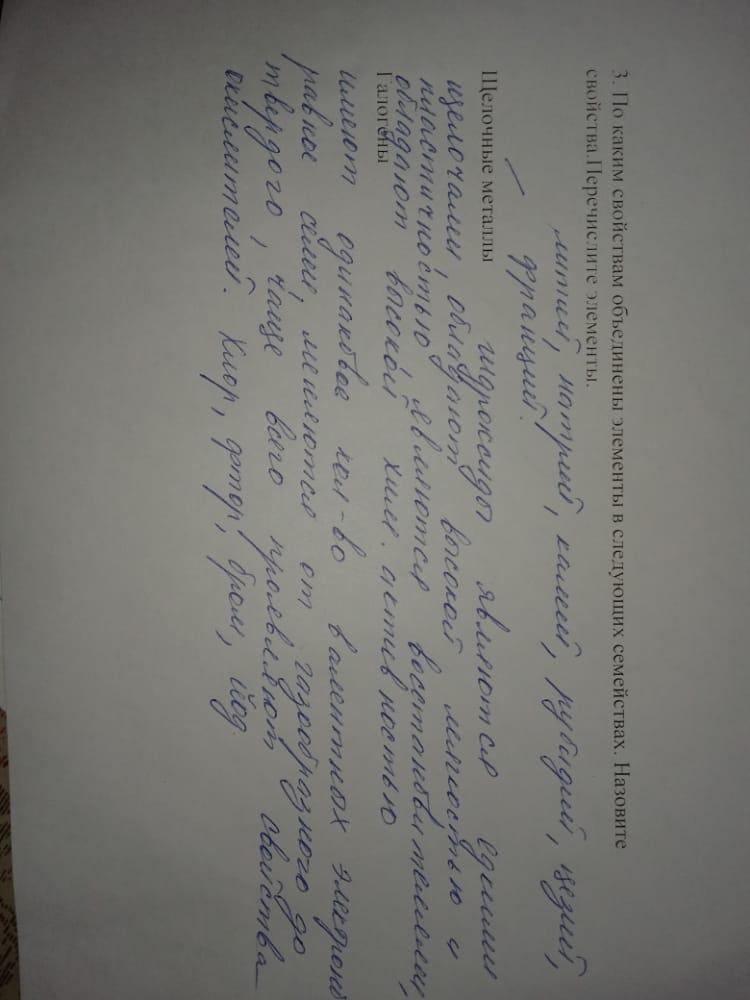 3. По каким свойствам объединены элементы в следующих семействах. Назовите
свойства.Перечислите элементы.
литий, натрий, калий, рубидий, цезий,
франций.
Щелочные металлы гидроксиды являются едкими
щелочами, обладают высокой мягкостью и
пластичностью, являются восстановителями,
обладают высокой хим. активностью
Галогены
имеют одинаковое кол-во валентных электронов
равное семи, меняются от газообразного до
твердого, чаще всего проявляют свойства
окислителей. Хлор, фтор, бром, йод.